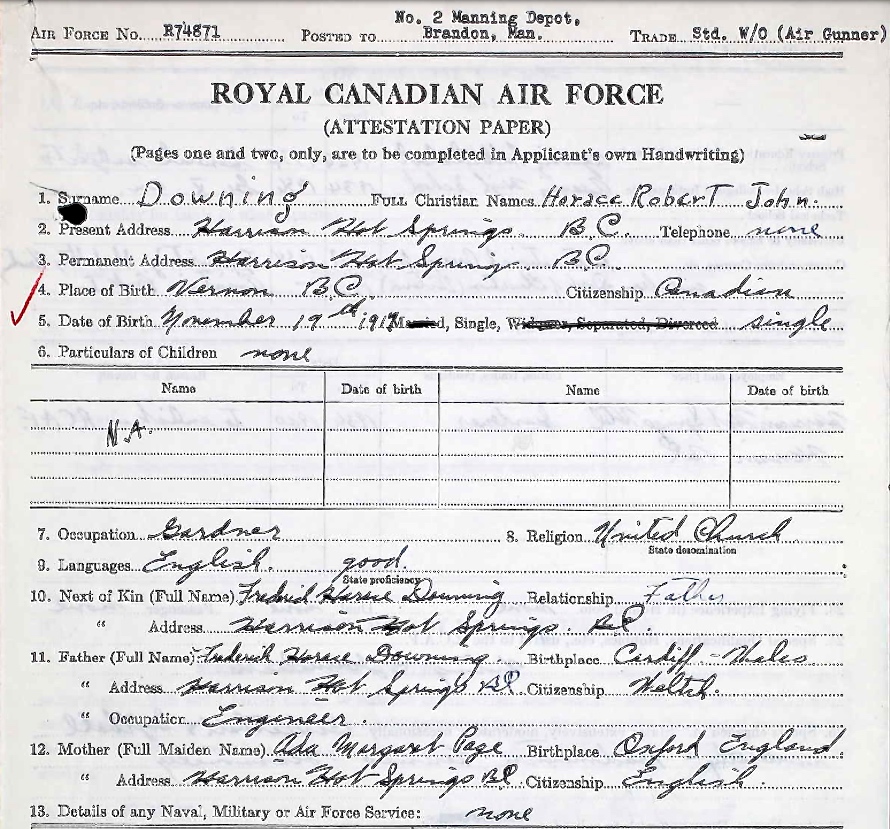 No. 2 Manning Depot,
AIR FORCE NO. R74871 POSTED TO Brandon, Man. TRADE Std. W/O (Air Gunner)
ROYAL CANADIAN AIR FORCE
(ATTESTATION PAPER)
(Pages one and two, only, are to be completed in Applicant's own Handwriting)
1. Surname Downing FULL Christian Names Horace Robert John.
2. Present Address Harrison Hot Springs. B.C. Telephone none
3. Permanent Address Harrison Hot Springs. B.C.
4. Place of Birth Vernon B.C. Citizenship Canadian
5. Date of Birth November 19th 1917 Married, Single, Widower, Separated, Divorced single
6. Particulars of Children none
Name Date of birth Name Date of birth
N.A.
7. Occupation Gardner 8. Religion United Church
State denomination
9. Languages English. good.
State proficiency
10. Next of Kin (Full Name) Frederick Horace Downing Relationship Father
" Address Harrison Hot Springs. BC
11. Father (Full Name) Frederick Horace Downing. Birthplace Cardiff - Wales
" Address Harrison Hot Springs BC Citizenship Welch.
" Occupation Engineer.
12. Mother (Full Maiden Name) Ada Margaret Page Birthplace Oxford England.
" Address Harrison Hot Springs BC Citizenship English.
13. Details of any Naval, Military or Air Force Service: none